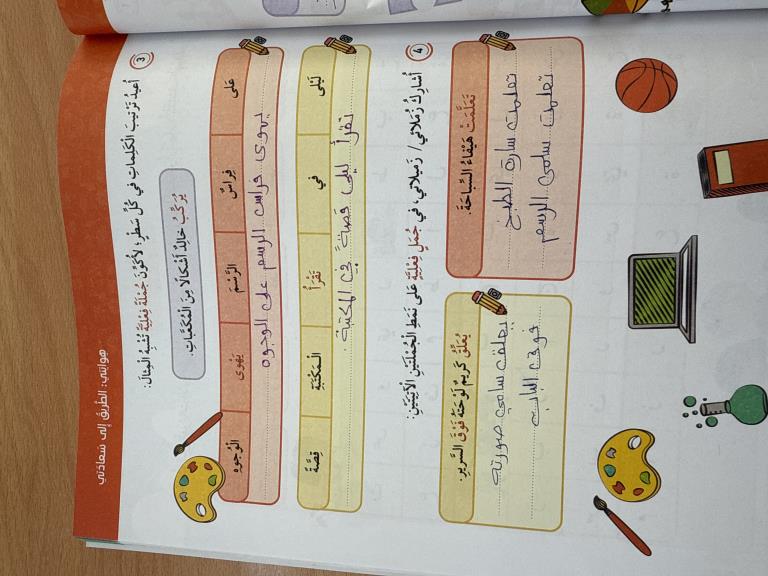 هِوايَتي: الطَّريقُ إلى سَعادَتي
3 أُعيدُ تَرْتيبَ الْكَلِماتِ في كُلِّ سَطْرٍ؛ لِأُكَوِّنَ جُمْلَةً فِعْلِيَّةً تُشْبِهُ الْمِثالَ:
يُرَكِّبُ خالِدٌ أَشْكالًا مِنَ الْمُكَعَّباتِ.
عَلى فِراسٌ الرَّسْمَ يَهْوى الْوُجوهِ
يهوى فراس الرسم على الوجوه
لَيْلى في تَقْرَأُ الْمَكْتَبَةِ قِصَّةً
تقرأ ليلى قصةً في المكتبة.
4 أُشارِكُ زُمَلائي/ زَميلاتي، في جُمَلٍ فِعْلِيَّةٍ عَلى نَمَطِ الْجُمْلَتَيْنِ الْآتِيَتَيْنِ:
تَعَلَّمَتْ هَيْفاءُ السِّباحَةَ.
تعلمت سارة الطبخ
تعلمت سلمى الرسم
يُعَلِّقُ كَريمٌ لَوْحَتَهُ فَوْقَ السَّريرِ.
يعلق سامي صورته
فوق الباب